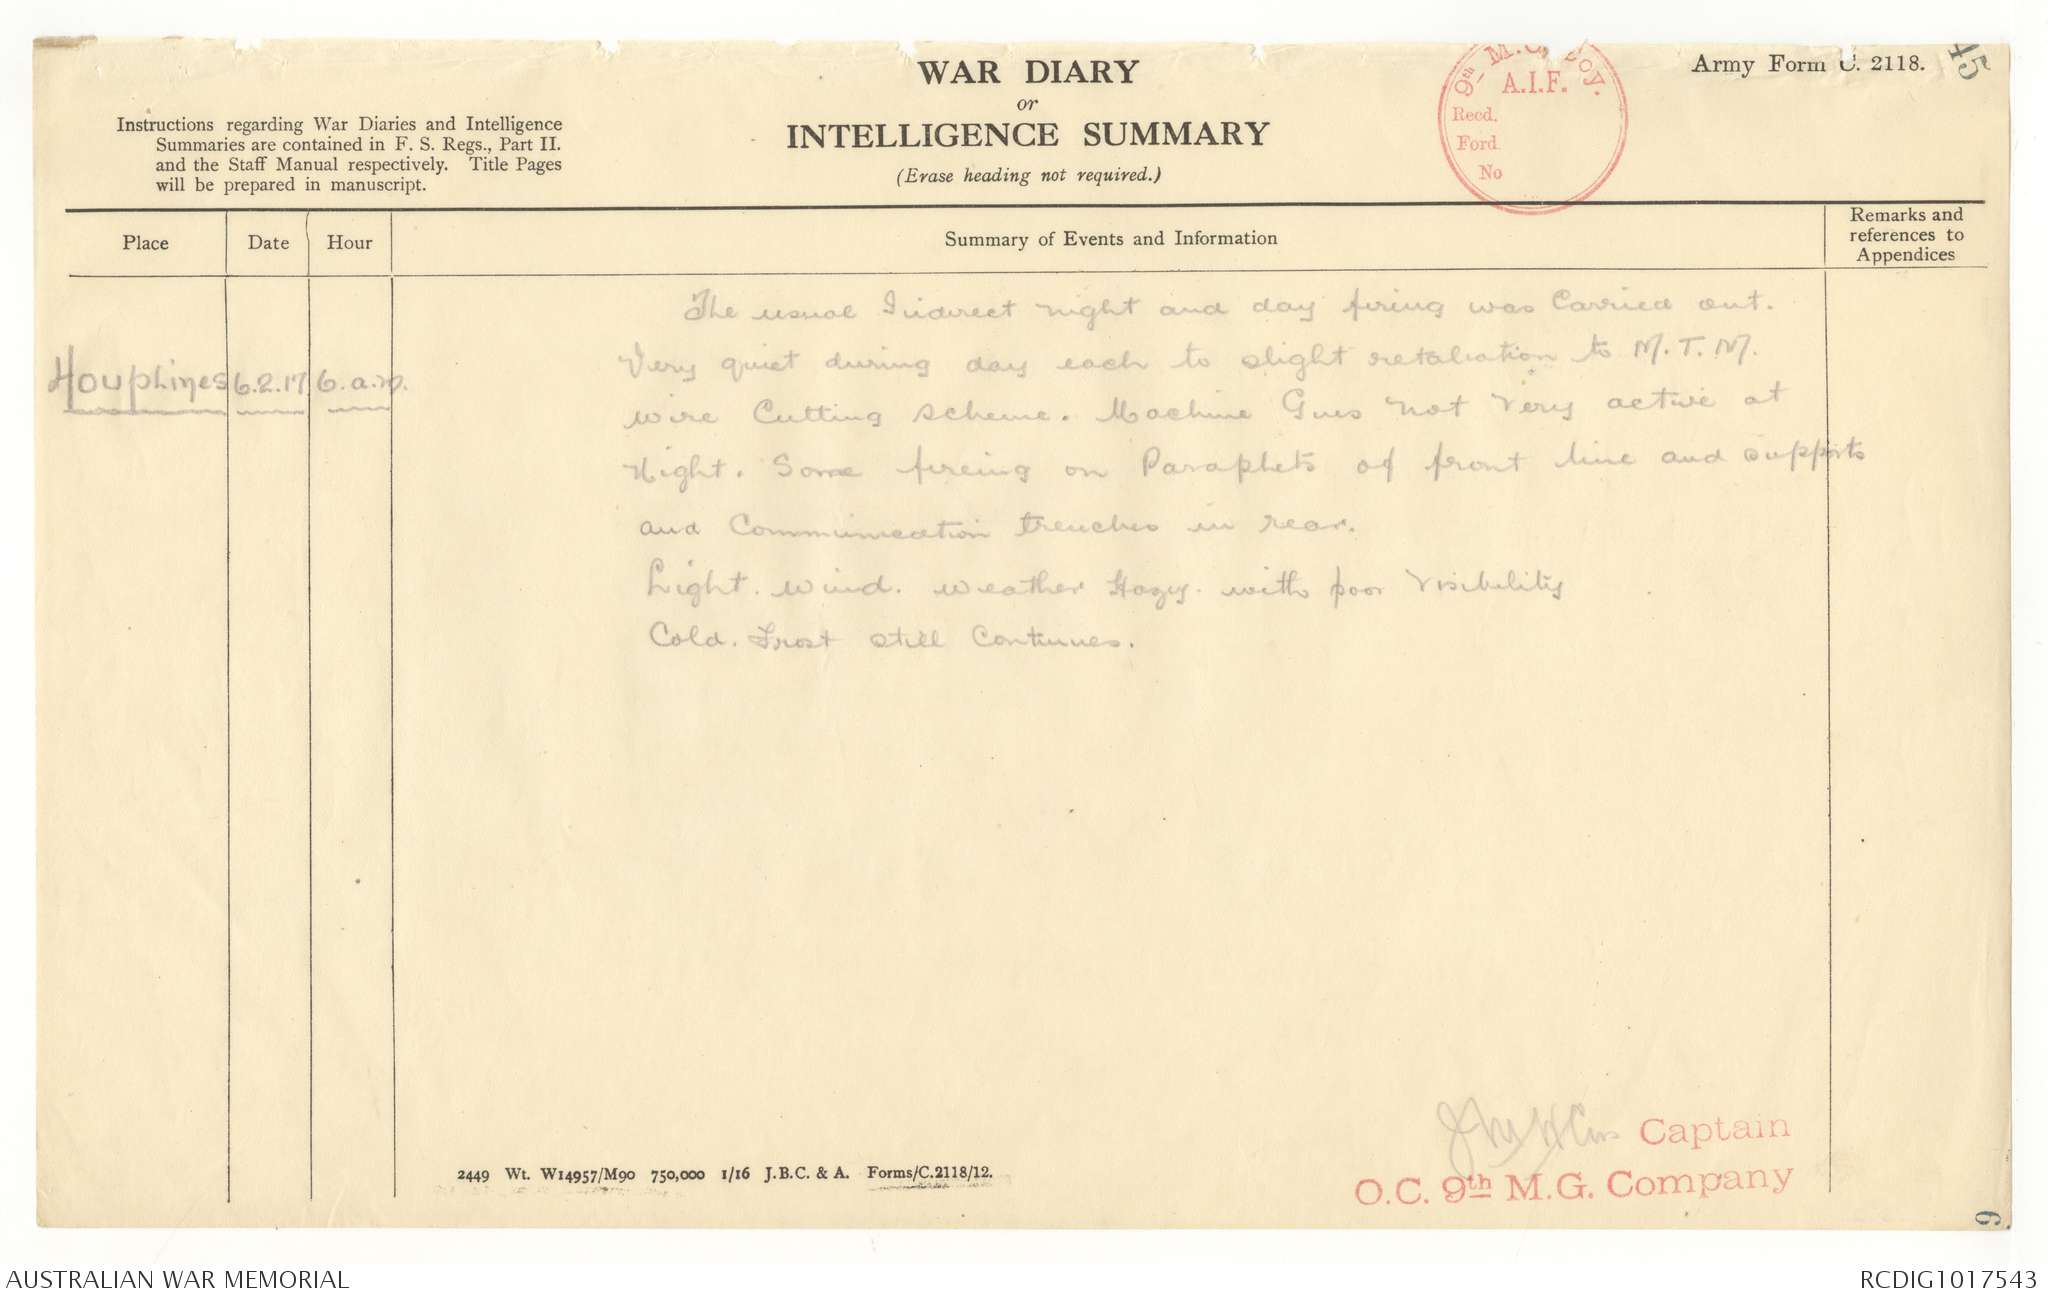 45
Army Form C. 2118.
WAR DIARY
or
INTELLIGENCE SUMMARY
(Erase heading not required.)
Instructions regarding War Diaries and Intelligence
Summaries are contained in F. S. Regs., Part II.
and the Staff Manual respectively. Title Pages
will be prepared in manuscript.
9th M.G. Coy.
A.I.F.
Recd.
Ford.
No
Place
Date
Hour
Summary of Events and Information
Remarks and
references to
Appendices
Houplines 6.2.17 6.a.m.
The usual Indirect night and day firing was Carried out.
Very quiet during day each to slight retaliation to M.T.M.
wire Cutting scheme. Machine Guns not Very active at
Night. Some fireing on Paraphets of front line and supports
and Communication trenches in rear.
Light. wind. weather Hazy. with poor Visibility
Cold. Frost still Continues.
Captain
O.C. 9th M.G. Company
2449 Wt. W14957/M90 750,000 1/16 J.B.C. & A. Forms/C.2118/12.
6
AUSTRALIAN WAR MEMORIAL
RCDIG1017543